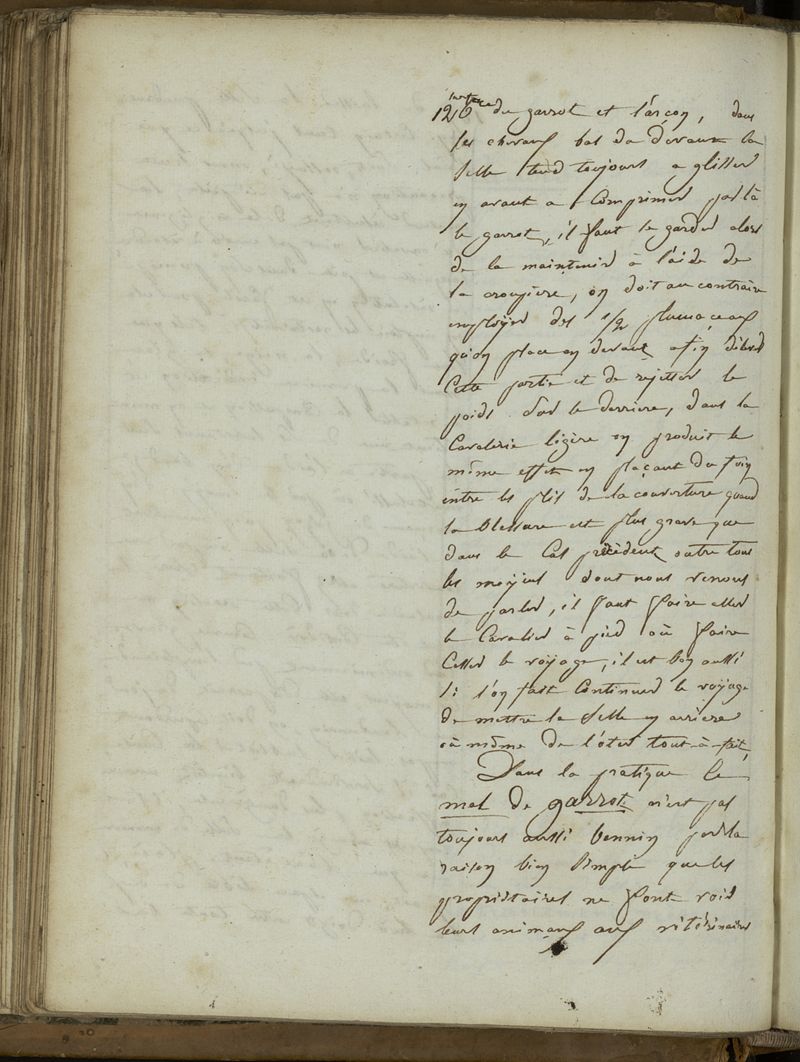 126 du garrot et l'arcon, dans
les chevaux bas da devant la
selle tend toujours a glisser
en avant a comprimer par là
le garrot, il faut se garder alors
de la maintenir à l'aide de
la croupiere, on doit au contraire
employer des 1/2 plumaceaux
qu'on place en devant afin
cette partie et de rejetter le
poids sur le derriere, dans la
Cavalerie légère on produit le
même effet en plaçant du foin
entre les plis de la couverture quand
la blessure est plus grave que
dans le cas précédent outre tous
les moyens dont nous venons
de parler, il faut faire aller
le Cavalier à pied où faire
cesser le voyage, il est bon aussi
si l'on fait continuer le voyage
de mettre la selle en arriere
où même de l'oter tout-à-fait,
Dans la pratique le
mal de garrot n'est pas
toujours aussi bennin par la
raison bien simple que les
propriétaires ne font voir
leurs animaux aux vétérinaires